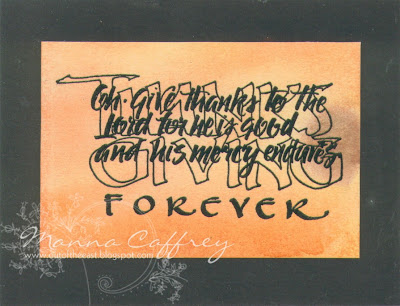 THANKS
GIVING
Oh. Give thanks to the
Lord for he is good
and his mercy endures
FOREVER
Manna Caffrey